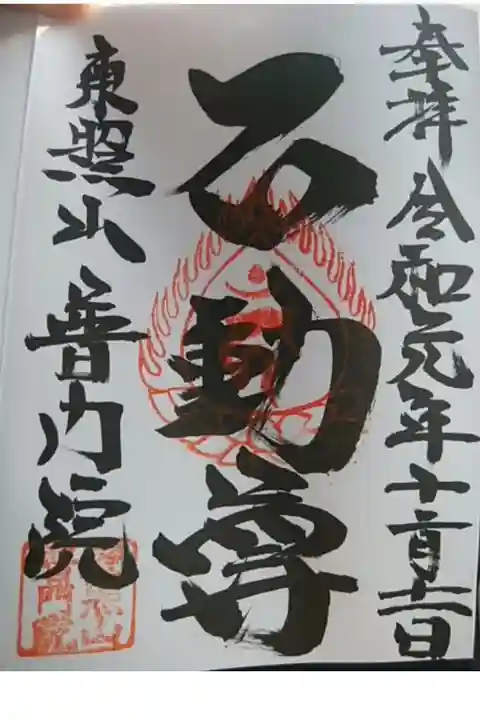 奉拝 令和元年十一月十一日
不動尊
東照山 普門院